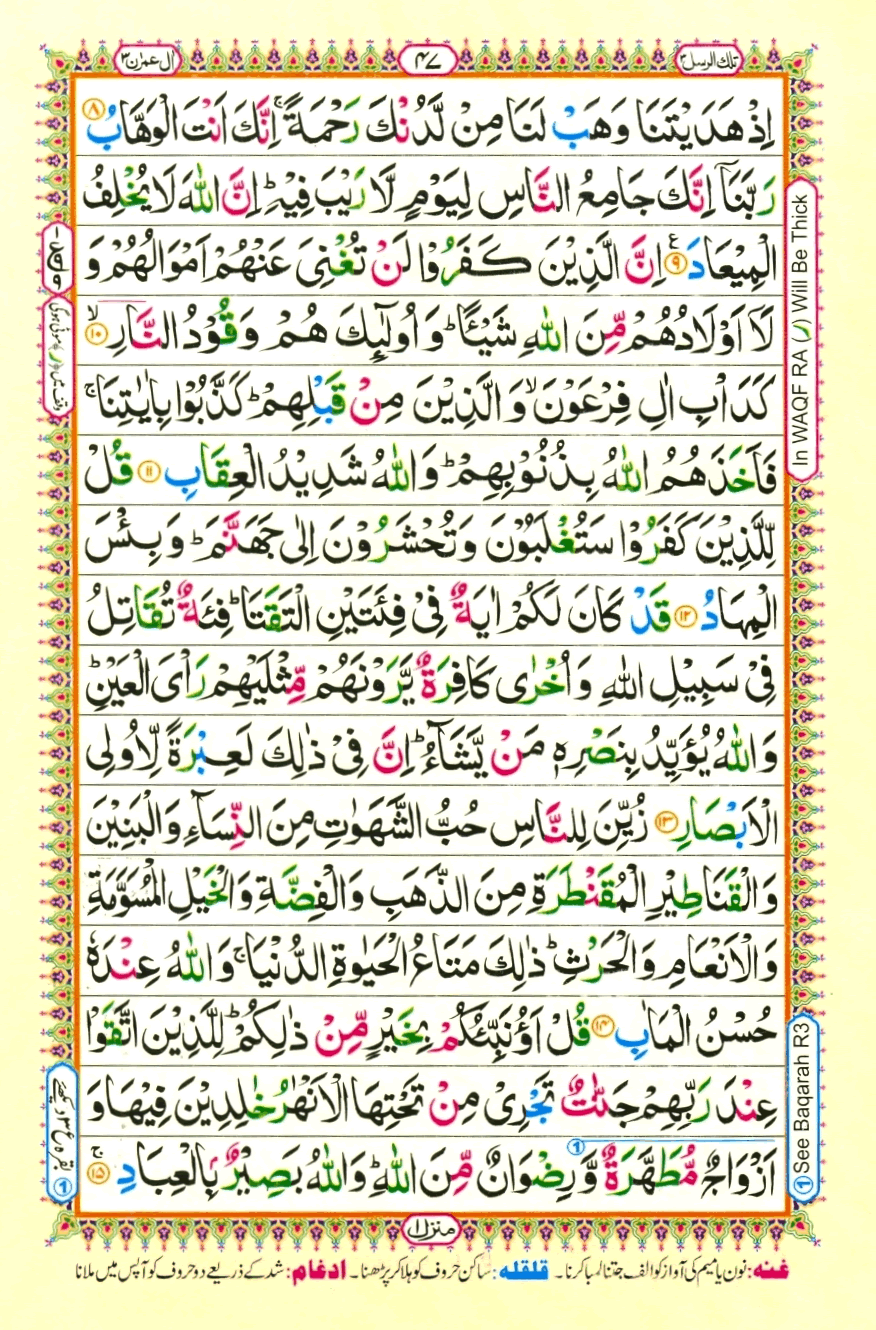 تلك الرسل ۳
۴۷
اٰل عمرٰن ۳
اِذْ هَدَيْتَنَا وَهَبْ لَنَا مِنْ لَّدُنْكَ رَحْمَةً ۚ اِنَّكَ اَنْتَ الْوَهَّابُ ۸
رَبَّنَاۤ اِنَّكَ جَامِعُ النَّاسِ لِيَوْمٍ لَّا رَيْبَ فِيْهِ ؕ اِنَّ اللّٰهَ لَا يُخْلِفُ
الْمِيْعَادَ ۹ ع اِنَّ الَّذِيْنَ كَفَرُوْا لَنْ تُغْنِيَ عَنْهُمْ اَمْوَالُهُمْ وَ
لَاۤ اَوْلَادُهُمْ مِّنَ اللّٰهِ شَيْـًٔا ؕ وَ اُولٰٓئِكَ هُمْ وَقُوْدُ النَّارِ ۱۰ لا
كَدَاْبِ اٰلِ فِرْعَوْنَ ۙ وَ الَّذِيْنَ مِنْ قَبْلِهِمْ ؕ كَذَّبُوْا بِاٰيٰتِنَا ۚ
فَاَخَذَهُمُ اللّٰهُ بِذُنُوْبِهِمْ ؕ وَ اللّٰهُ شَدِيْدُ الْعِقَابِ ۱۱ قُلْ
لِّلَّذِيْنَ كَفَرُوْا سَتُغْلَبُوْنَ وَتُحْشَرُوْنَ اِلٰى جَهَنَّمَ ؕ وَ بِئْسَ
الْمِهَادُ ۱۲ قَدْ كَانَ لَكُمْ اٰيَةٌ فِيْ فِئَتَيْنِ الْتَقَتَا ؕ فِئَةٌ تُقَاتِلُ
فِيْ سَبِيْلِ اللّٰهِ وَ اُخْرٰى كَافِرَةٌ يَّرَوْنَهُمْ مِّثْلَيْهِمْ رَاْيَ الْعَيْنِ ؕ
وَ اللّٰهُ يُؤَيِّدُ بِنَصْرِهٖ مَنْ يَّشَآءُ ؕ اِنَّ فِيْ ذٰلِكَ لَعِبْرَةً لِّاُولِي
الْاَبْصَارِ ۱۳ زُيِّنَ لِلنَّاسِ حُبُّ الشَّهَوٰتِ مِنَ النِّسَآءِ وَ الْبَنِيْنَ
وَالْقَنَاطِيْرِ الْمُقَنْطَرَةِ مِنَ الذَّهَبِ وَالْفِضَّةِ وَالْخَيْلِ الْمُسَوَّمَةِ
وَالْاَنْعَامِ وَالْحَرْثِ ؕ ذٰلِكَ مَتَاعُ الْحَيٰوةِ الدُّنْيَا ۚ وَ اللّٰهُ عِنْدَهٗ
حُسْنُ الْمَاٰبِ ۱۴ قُلْ اَؤُنَبِّئُكُمْ بِخَيْرٍ مِّنْ ذٰلِكُمْ ؕ لِلَّذِيْنَ اتَّقَوْا
عِنْدَ رَبِّهِمْ جَنّٰتٌ تَجْرِيْ مِنْ تَحْتِهَا الْاَنْهٰرُ خٰلِدِيْنَ فِيْهَا وَ
اَزْوَاجٌ مُّطَهَّرَةٌ وَّ رِضْوَانٌ مِّنَ اللّٰهِ ؕ وَ اللّٰهُ بَصِيْرٌۢ بِالْعِبَادِ ۱۵ ج
In WAQF RA (ر) Will Be Thick
① See Baqarah R3
منزل ۱
غنه: نون یا میم کی آواز کو الف جتنا لمبا کرنا۔ قلقله: ساکن حروف کو ہلا کر پڑھنا۔ ادغام: شد کے ذریعے دو حروف کو آپس میں ملانا